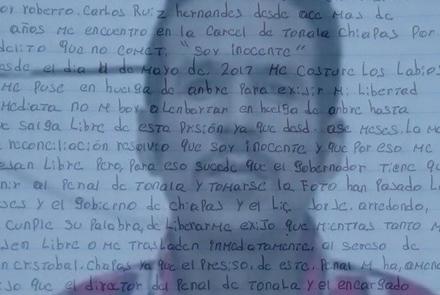 or roberto. Carlos Ruiz hernandes desde ace mas de
años me encuentro en la Carcel de Tonala Chiapas Por
delito que no cometi, "Soy inocente"
esde el dia de Mayo de. 2017 me Costure Los Labios
Me Puse en huelga de anbre Para exisir Mi Libertad
mediata no M boy alenbartar en huelga de anbre hasta
e Salga Libre de esta Prision ya que desd. ase Meses. La Me
reconciliación resolvio que soy inocente y que Por eso Me
esan Libre Pero, Para eso sucede que el Gobernador Tiene q
nir al Penal de Tonala y Tomarse la Foto han Pasado L
ses y el Gobierno de chiapas y el Lic, Jorje. arredondo,
cunple su Palabra, de Liberarme exiJo que mientras Tanto M
Jen Libre o Me Trasladen inmediatamente, al sereso de
n cristobal. chapas ya que el Presiso, de este. Penal M ha, amena
iso que el director del Penal de Tonala y el encargado